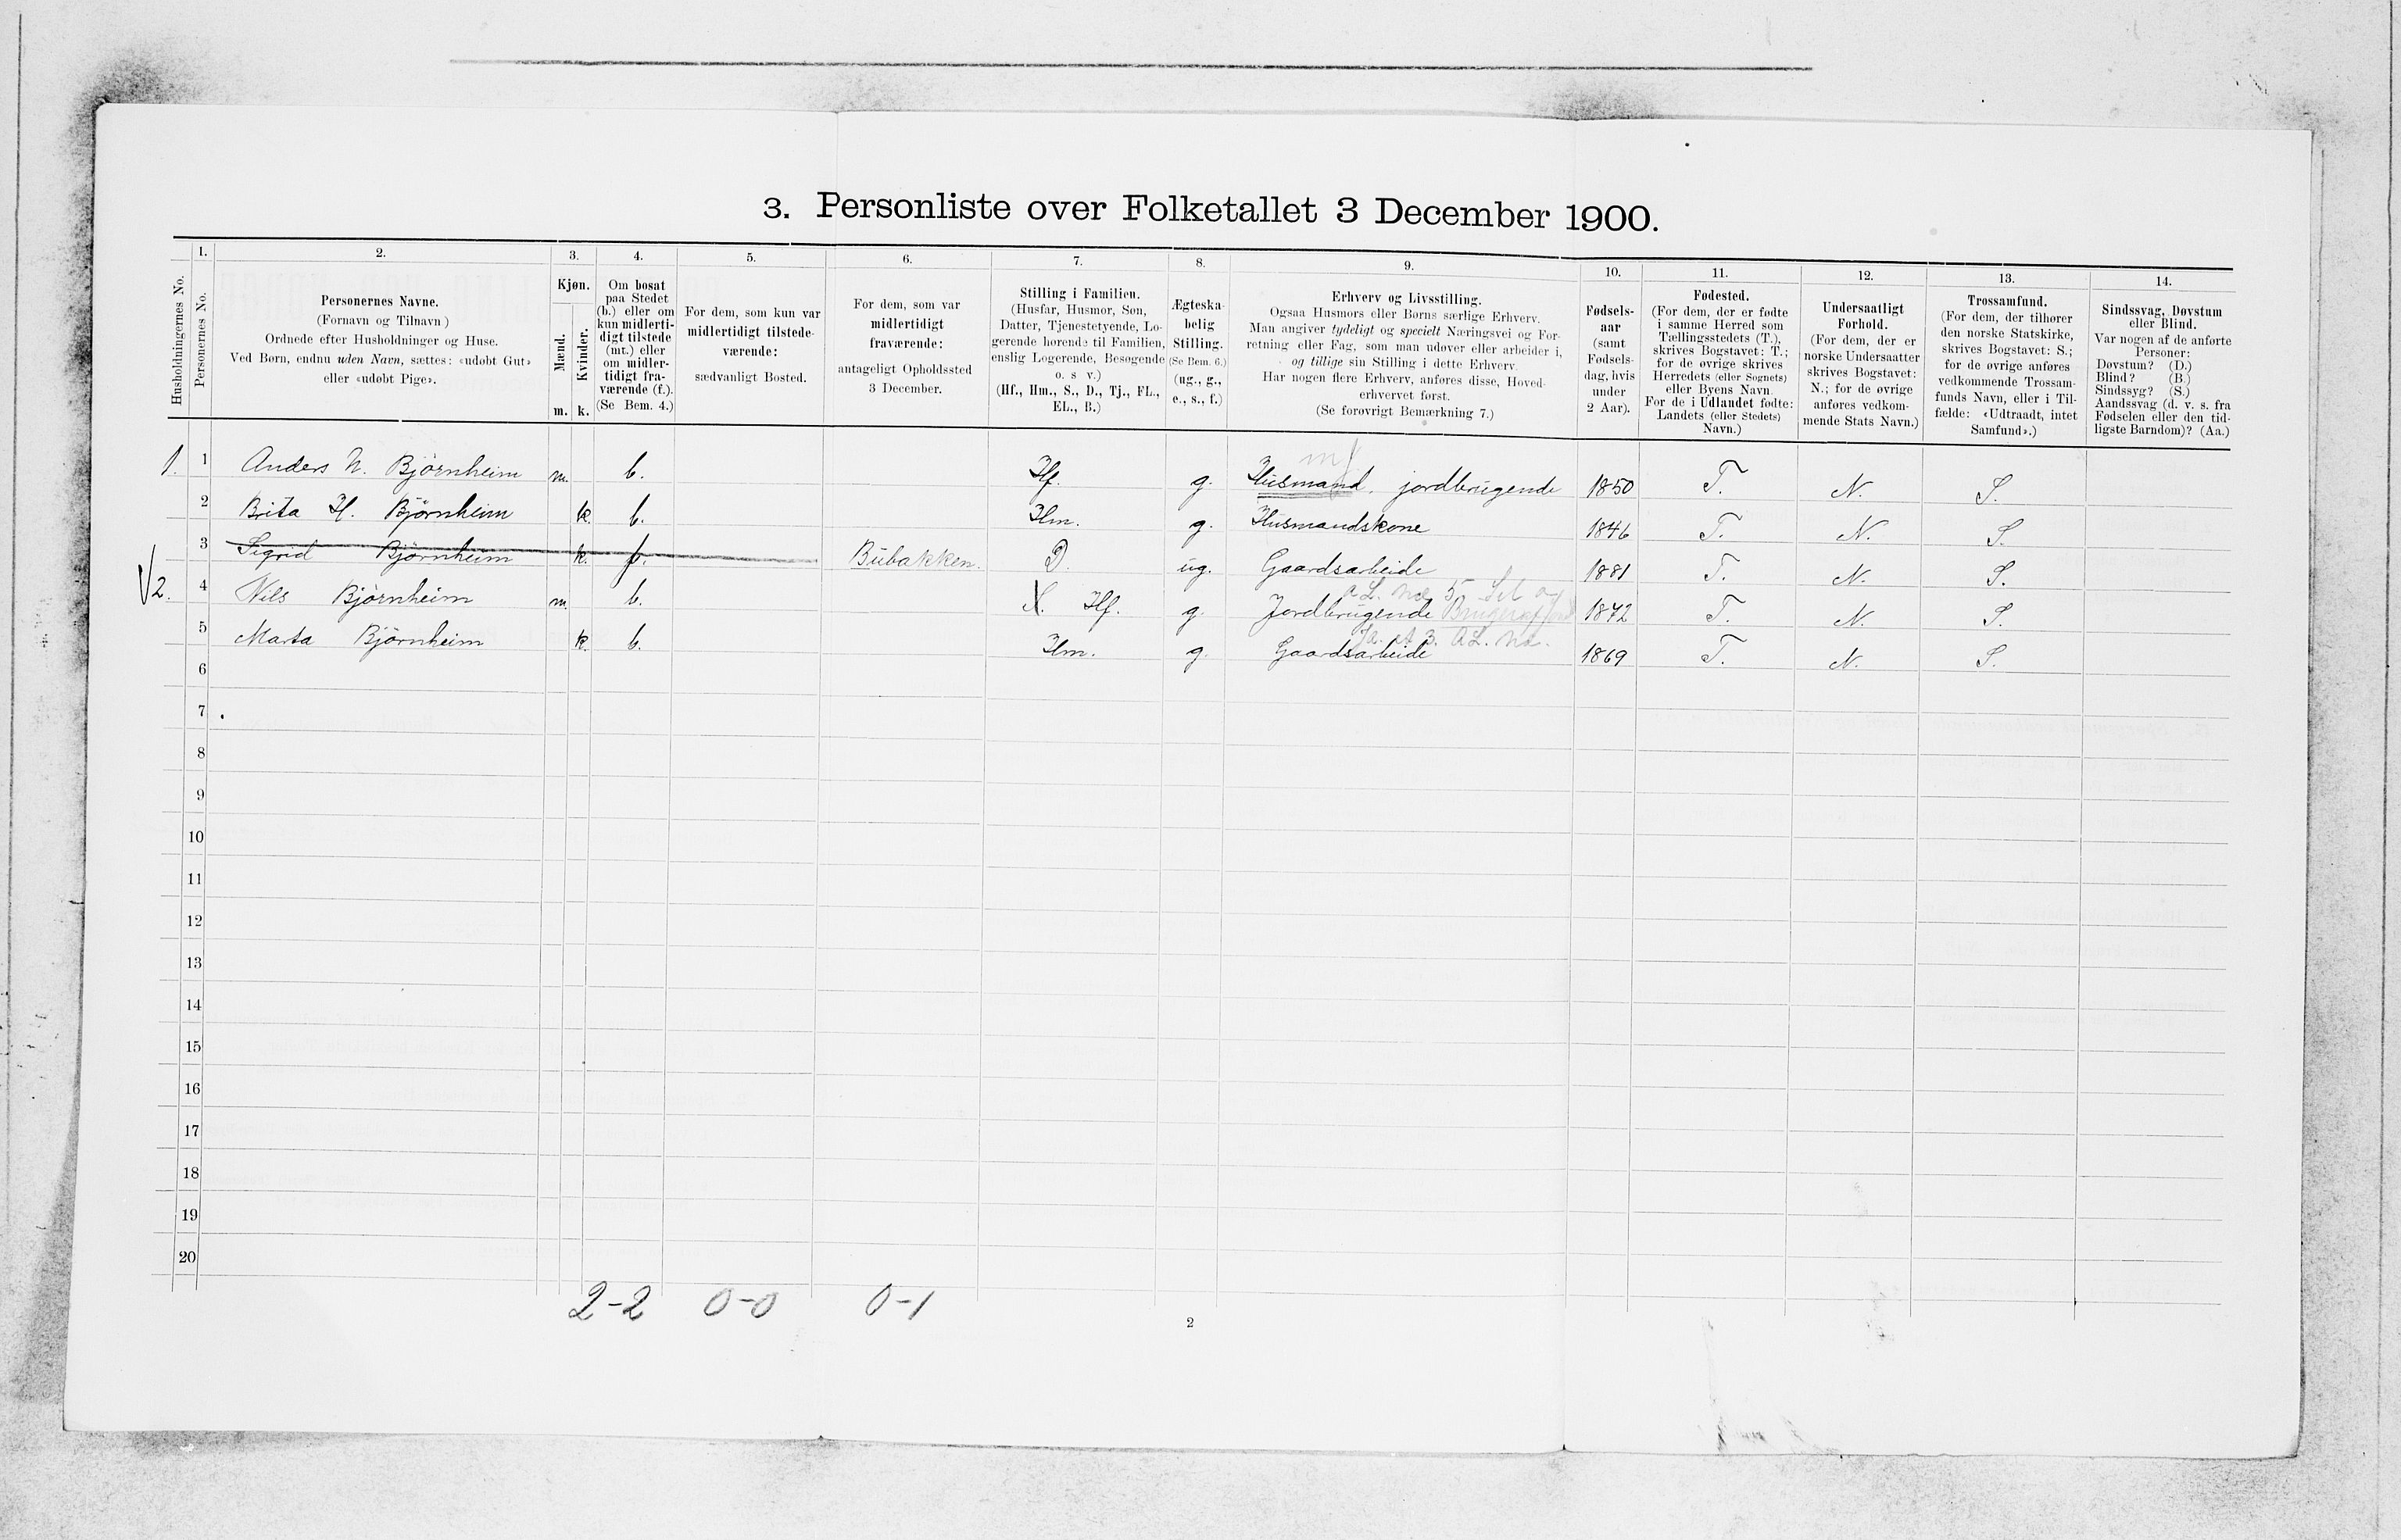 3. Personliste over Folketallet 3 December 1900.
1. 2. 3. 4. 5. 6. 7. 8. 9. 10. 11. 12. 13. 14.
Husholdningernes No.
Personernes No.
Personernes Navne.
(Fornavn og Tilnavn)
Ordnede efter Husholdninger og Huse.
Ved Børn, endnu uden Navn, sættes: «udøbt Gut»
eller «udøbt Pige».
Kjøn.
Mænd.
Kvinder.
m. k.
Om bosat
paa Stedet
(b.) eller om
kun midlerti-
digt tilstede
(mt.) eller
om midler-
tidigt fra-
værende (f.).
(Se Bem. 4.)
For dem, som kun var
midlertidigt tilstede-
værende:
sædvanligt Bosted.
For dem, som var
midlertidigt
fraværende:
antageligt Opholdssted
3 December.
Stilling i Familien.
(Husfar, Husmor, Søn,
Datter, Tjenestetyende, Lo-
gerende hørende til Familien,
enslig Logerende, Besøgende
o. s v.)
(Hf., Hm., S., D., Tj., FL.,
EL., B.)
Ægteska-
belig
Stilling.
(Se Bem. 6.)
(ug., g.,
e., s., f.)
Erhverv og Livsstilling.
Ogsaa Husmors eller Børns særlige Erhverv.
Man angiver tydeligt og specielt Næringsvei og For-
retning eller Fag, som man udøver eller arbeider i,
og tillige sin Stilling i dette Erhverv.
Har nogen flere Erhverv, anføres disse, Hoved-
erhvervet først.
(Se forøvrigt Bemærkning 7.)
Fødsels-
aar
(samt
Fødsels-
dag, hvis
under
2 Aar).
Fødested.
(For dem, der er fødte
i samme Herred som
Tællingsstedets (T.),
skrives Bogstavet: T.;
for de øvrige skrives
Herredets (eller Sognets)
eller Byens Navn.
For de i Udlandet fødte:
Landets (eller Stedets)
Navn.)
Undersaatligt
Forhold.
(For dem, der er
norske Undersaatter
skrives Bogstavet:
N.; for de øvrige
anføres vedkom-
mende Stats Navn.)
Trossamfund.
(For dem, der tilhører
den norske Statskirke,
skrives Bogstavet: S.;
for de øvrige anføres
vedkommende Trossam-
funds Navn, eller i Til-
fælde: «Udtraadt, intet
Samfund».)
Sindssvag, Døvstum
eller Blind.
Var nogen af de anførte
Personer:
Døvstum? (D.)
Blind? (B.)
Sindssyg? (S.)
Aandssvag (d. v. s. fra
Fødselen eller den tid-
ligste Barndom)? (Aa.)
1. 1 Anders N. Bjørnheim m. b. Hf. g. Husmand, jordbrugende 1850 T. N. S.
2 Brita H. Bjørnheim k. b. Hm. g. Husmandskone 1846 T. N. S.
3 Sigrid Bjørnheim k. f. Bübakken. D. ug. Gaardsarbeide 1881 T. N. S.
2. 4 Nils Bjørnheim m. b. S. Hf. g. Jordbrugende 1872 T. N. S.
5 Marta Bjørnheim k. b. Hm. g. Gaardsarbeide 1869 T. N. S.
6
7
8
9
10
11
12
13
14
15
16
17
18
19
20
2-2 0-0 0-1
2